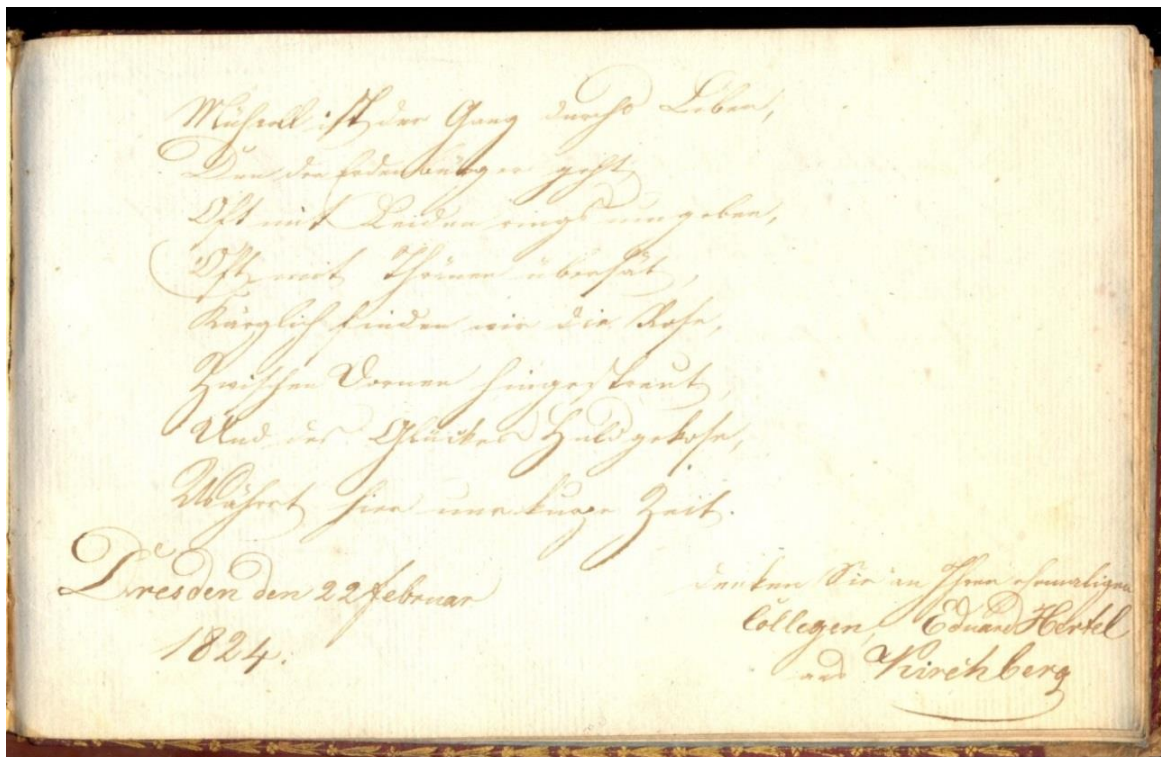 Mühvoll ist der Gang durchs Leben,
Den der Erdenbürger geht,
Oft mit Leiden rings umgeben,
Oft mit Thränen übersät,
Kärglich finden wir die Rose,
Zwischen Dornen hingestreut,
Und des Glückes Huldgekose,
Währet hier nur kurze Zeit.
Dresden den 22 Februar
1824.
denken Sie an Ihren ehemaligen
Collegen, Eduard Hertel
aus Kirchberg